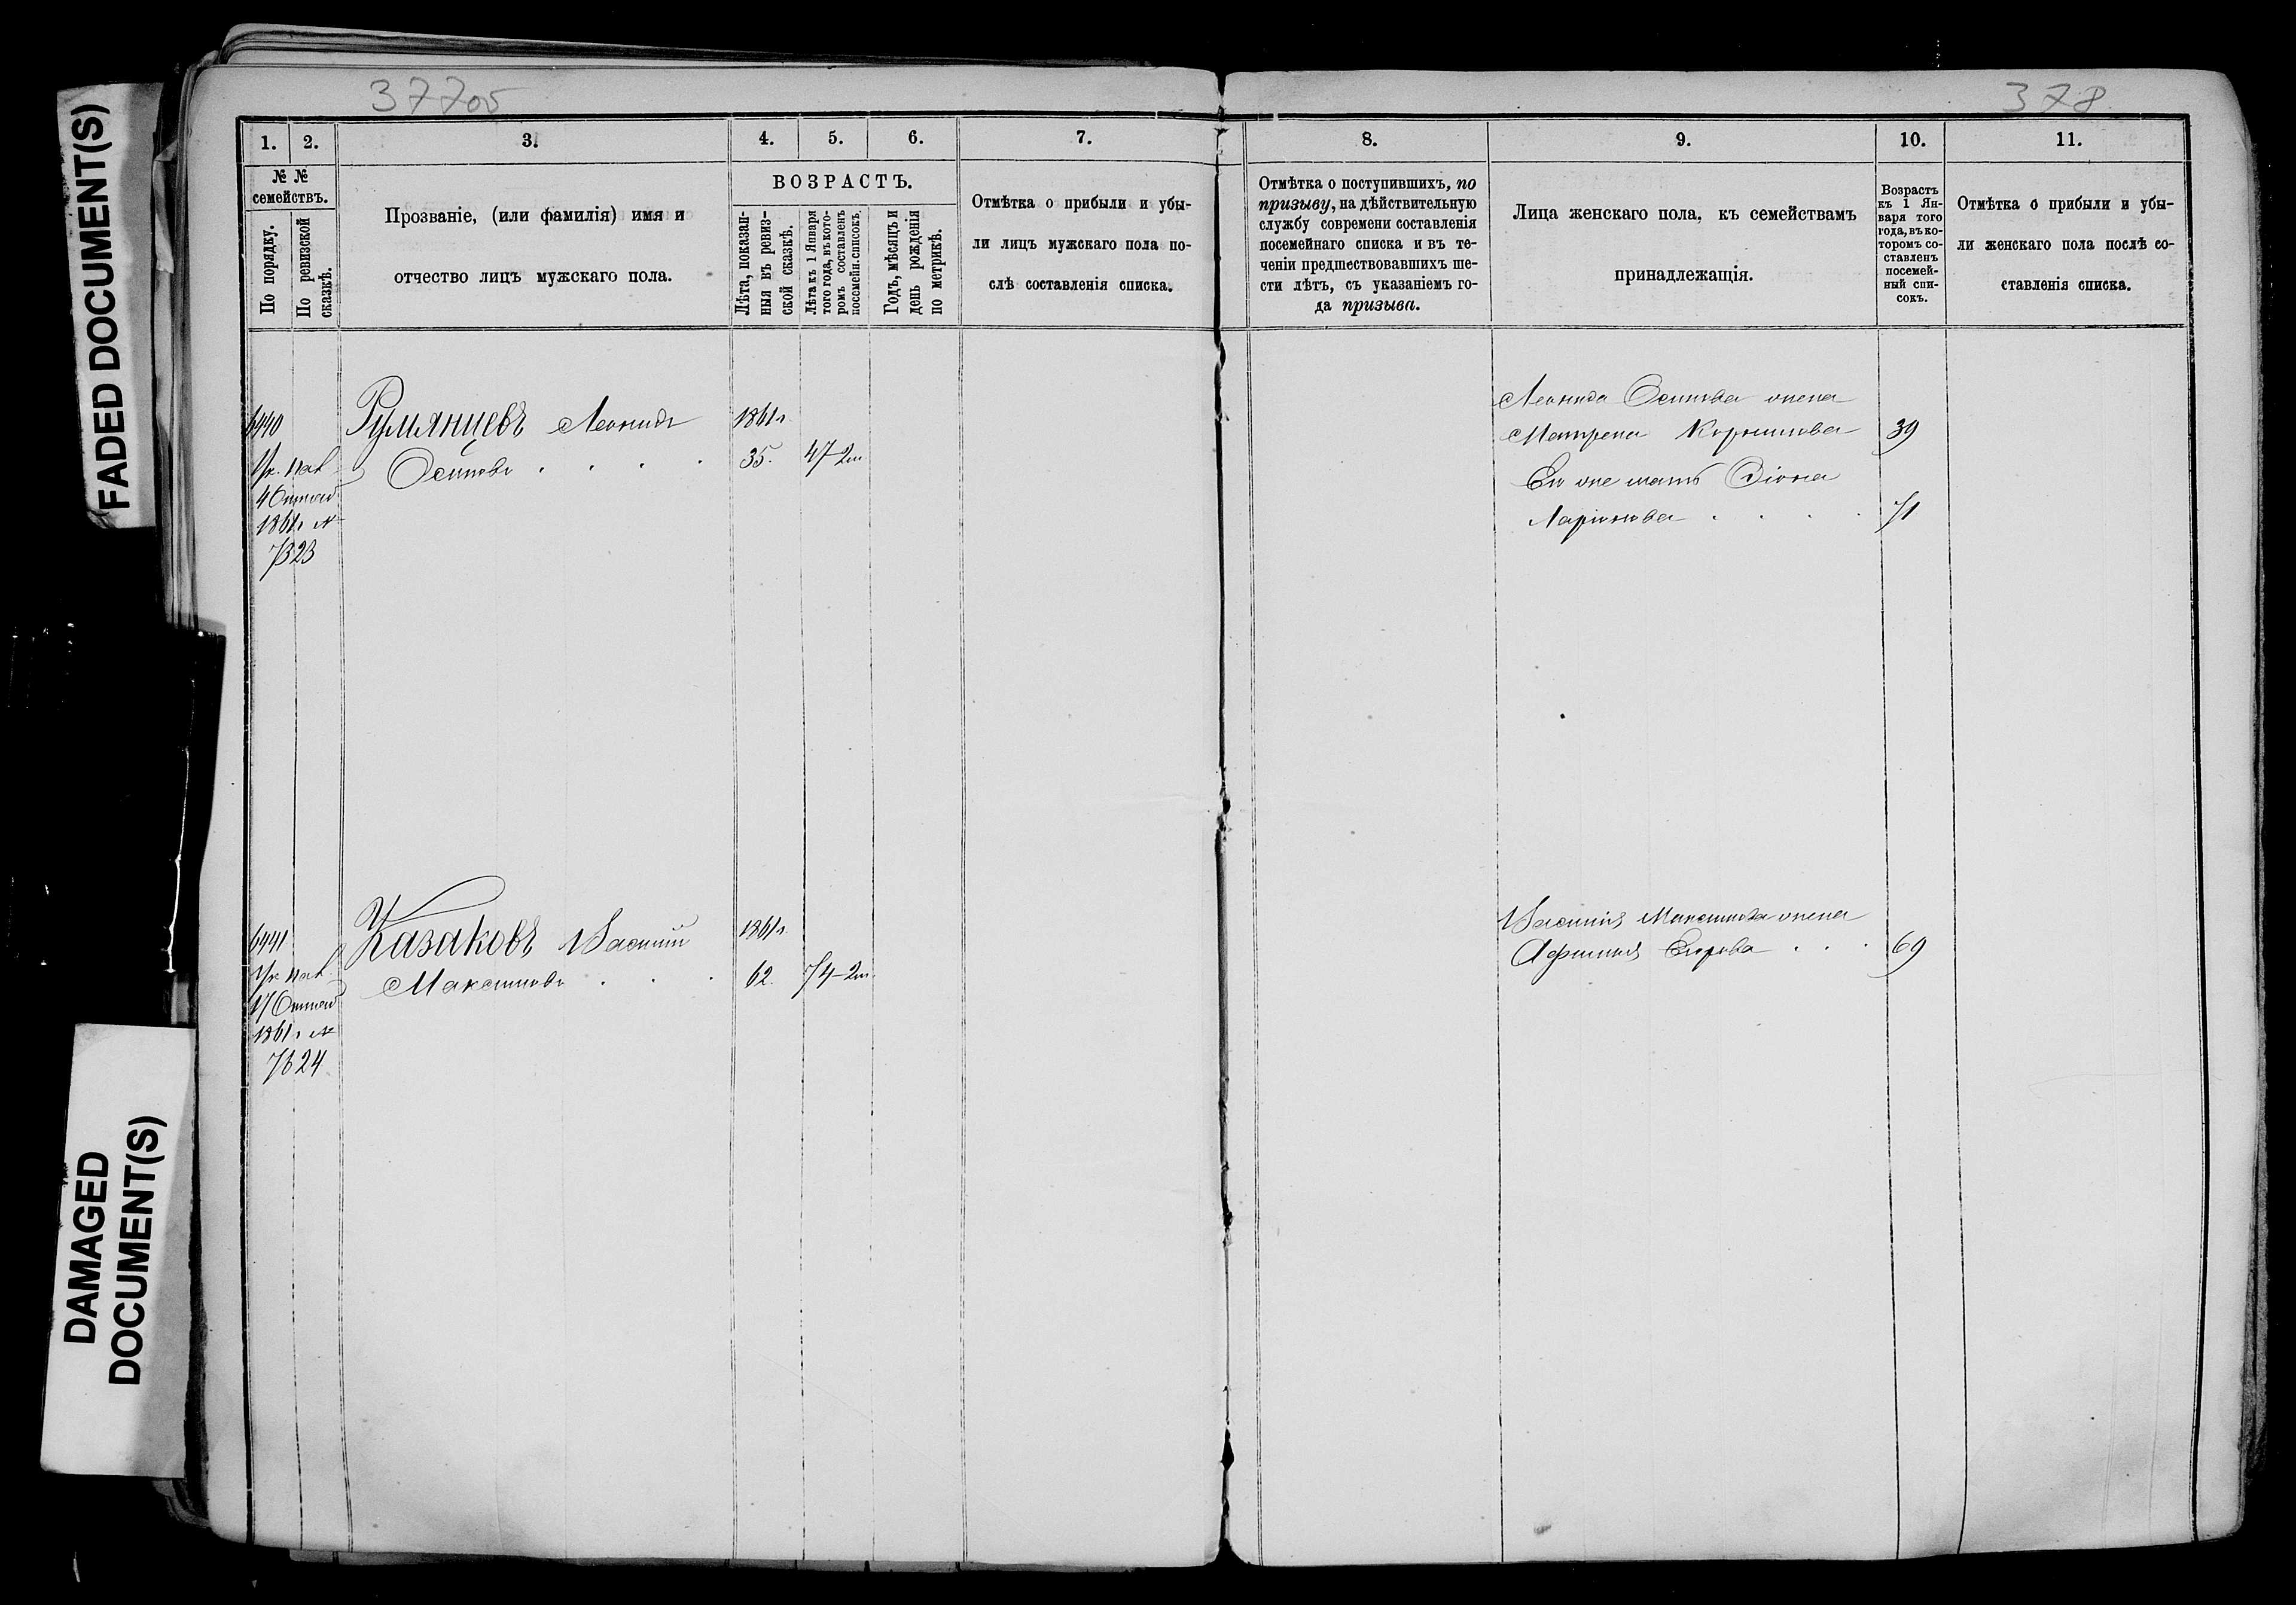 FADED DOCUMENT(S)
DAMAGED
DOCUMENT(S)
377об
378
1.
2.
3.
4.
5.
6.
7.
8.
9.
10.
11.
№ №
семействъ.
По порядку.
По ревизской
сказкѣ.
Прозваніе, (или фамилія) имя и
отчество лицъ мужскаго пола.
ВОЗРАСТЪ.
Лѣта, показан-
ныя въ ревиз-
ской сказкѣ.
Лѣта къ 1 Января
того года, въ кото-
ромъ составленъ
посемейн. списокъ.
Годъ, мѣсяцъ и
день рожденія
по метрикѣ.
Отмѣтка о прибыли и убы-
ли лицъ мужскаго пола по-
слѣ составленія списка.
Отмѣтка о поступившихъ, по
призыву, на дѣйствительную
службу современи составленія
посемейнаго списка и въ те-
ченіи предшествовавшихъ ше-
сти лѣтъ, съ указаніемъ го-
да призыва.
Лица женскаго пола, къ семействамъ
принадлежащія.
Возрастъ
къ 1 Ян-
варя того
года, въ ко-
торомъ со-
ставленъ
посемей-
ный спи-
сокъ.
Отмѣтка о прибыли и убы-
ли женскаго пола послѣ со-
ставленія списка.
6440
Румянцевъ Леонидъ
1861г.
Осиповъ
35.
47-2м
1861г №
7323
Леонида Осипова жена
Матрена
39
Его же мать
Ларіонова
71
6441
Казаковъ Василій
1861г.
Максимовъ
62.
74-2м.
1861г №
7624
Василія Максимова жена
Афимия Егорова
69